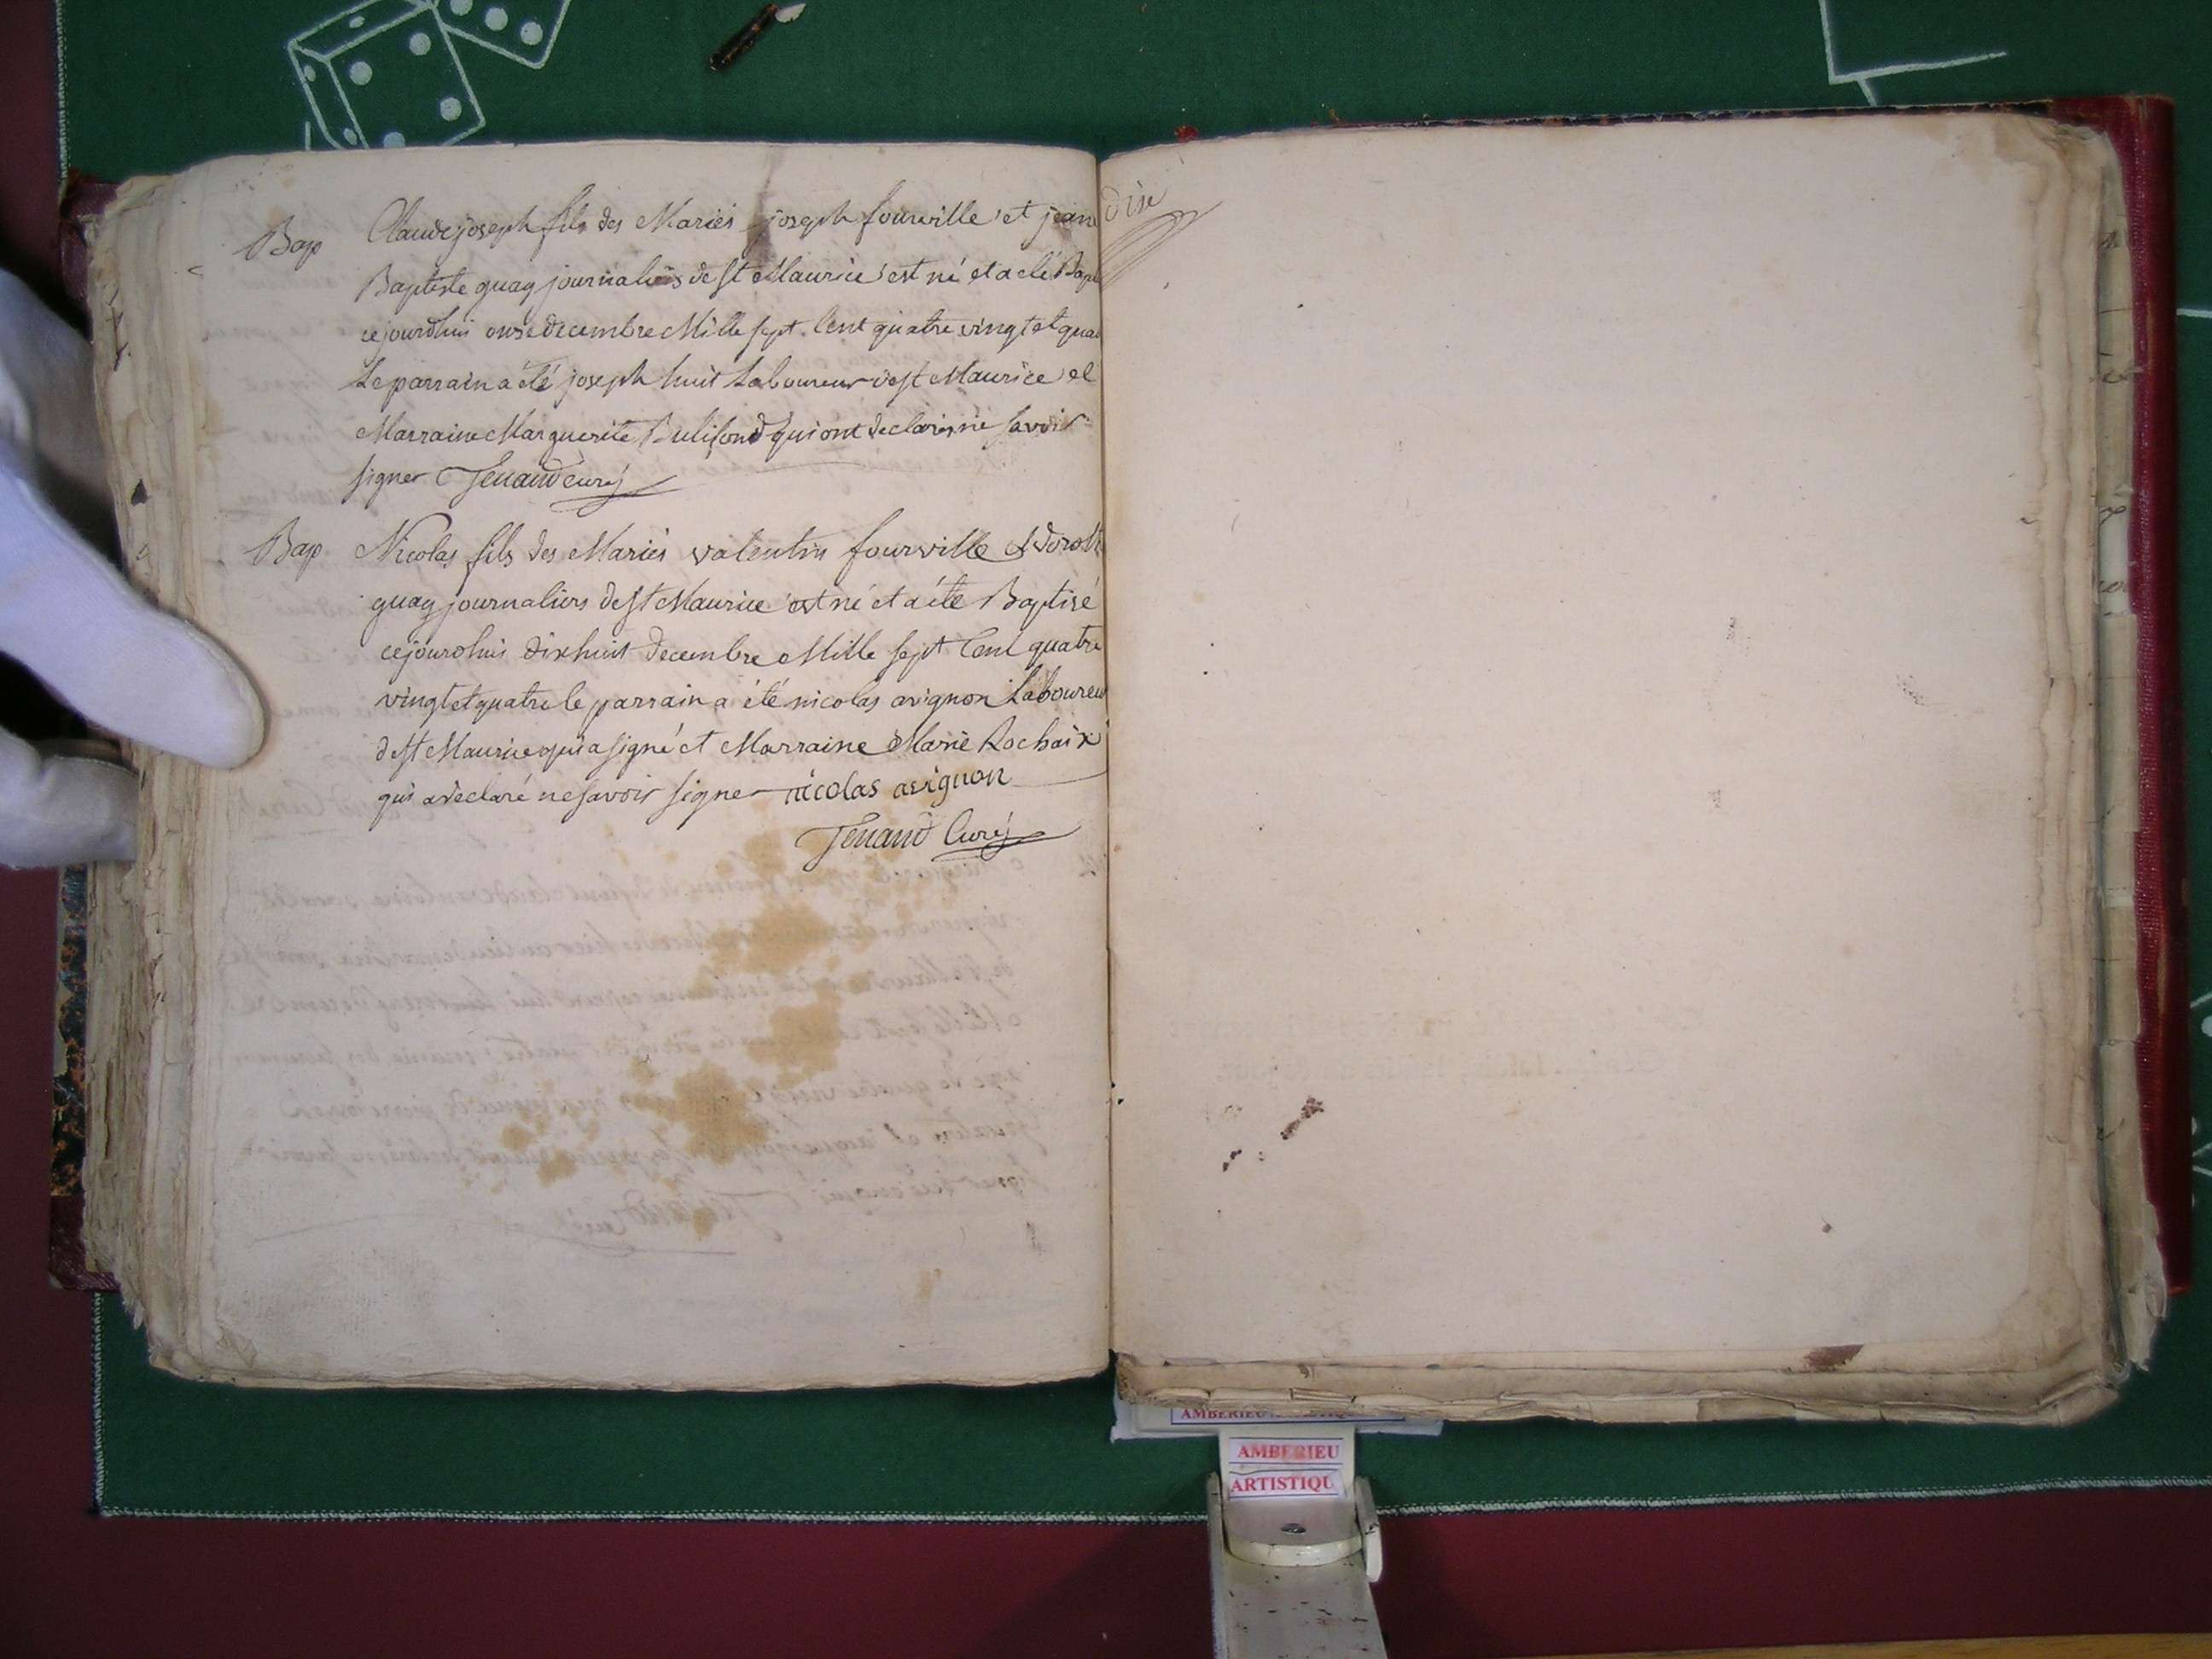 Bap
Claude joseph fils des Mariés joseph fourville et jeanne
Baptiste quay journaliers de st Maurice est né et a eté Bapt
cejourdhui onze decembre Mille sept Cent quatre vingt et quat
Le parrain a été joseph huit Laboureur de st Maurice et
Marraine Marguerite Bulifond qui ont declarés ne savoir
signer Tenand curé
Bap
Nicolas fils des Mariés valentin fourville & doroth
quay journaliers de st Maurice est né et a été Baptisé
cejourdhui dixhuit decembre Mille sept Cent quatre
vingt et quatre le parrain a été nicolas avignon Laboureu
de st Maurice qui a signé et Marraine Marie Rochaix
qui a declaré ne savoir signer nicolas avignon
Tenand Curé
dix
AMBERIEU
AMBERIEU
ARTISTIQU